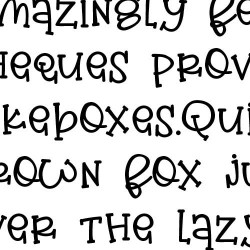 mazingly fe
heques prov
keboxes.Qui
rown fox ju
ver the lazy